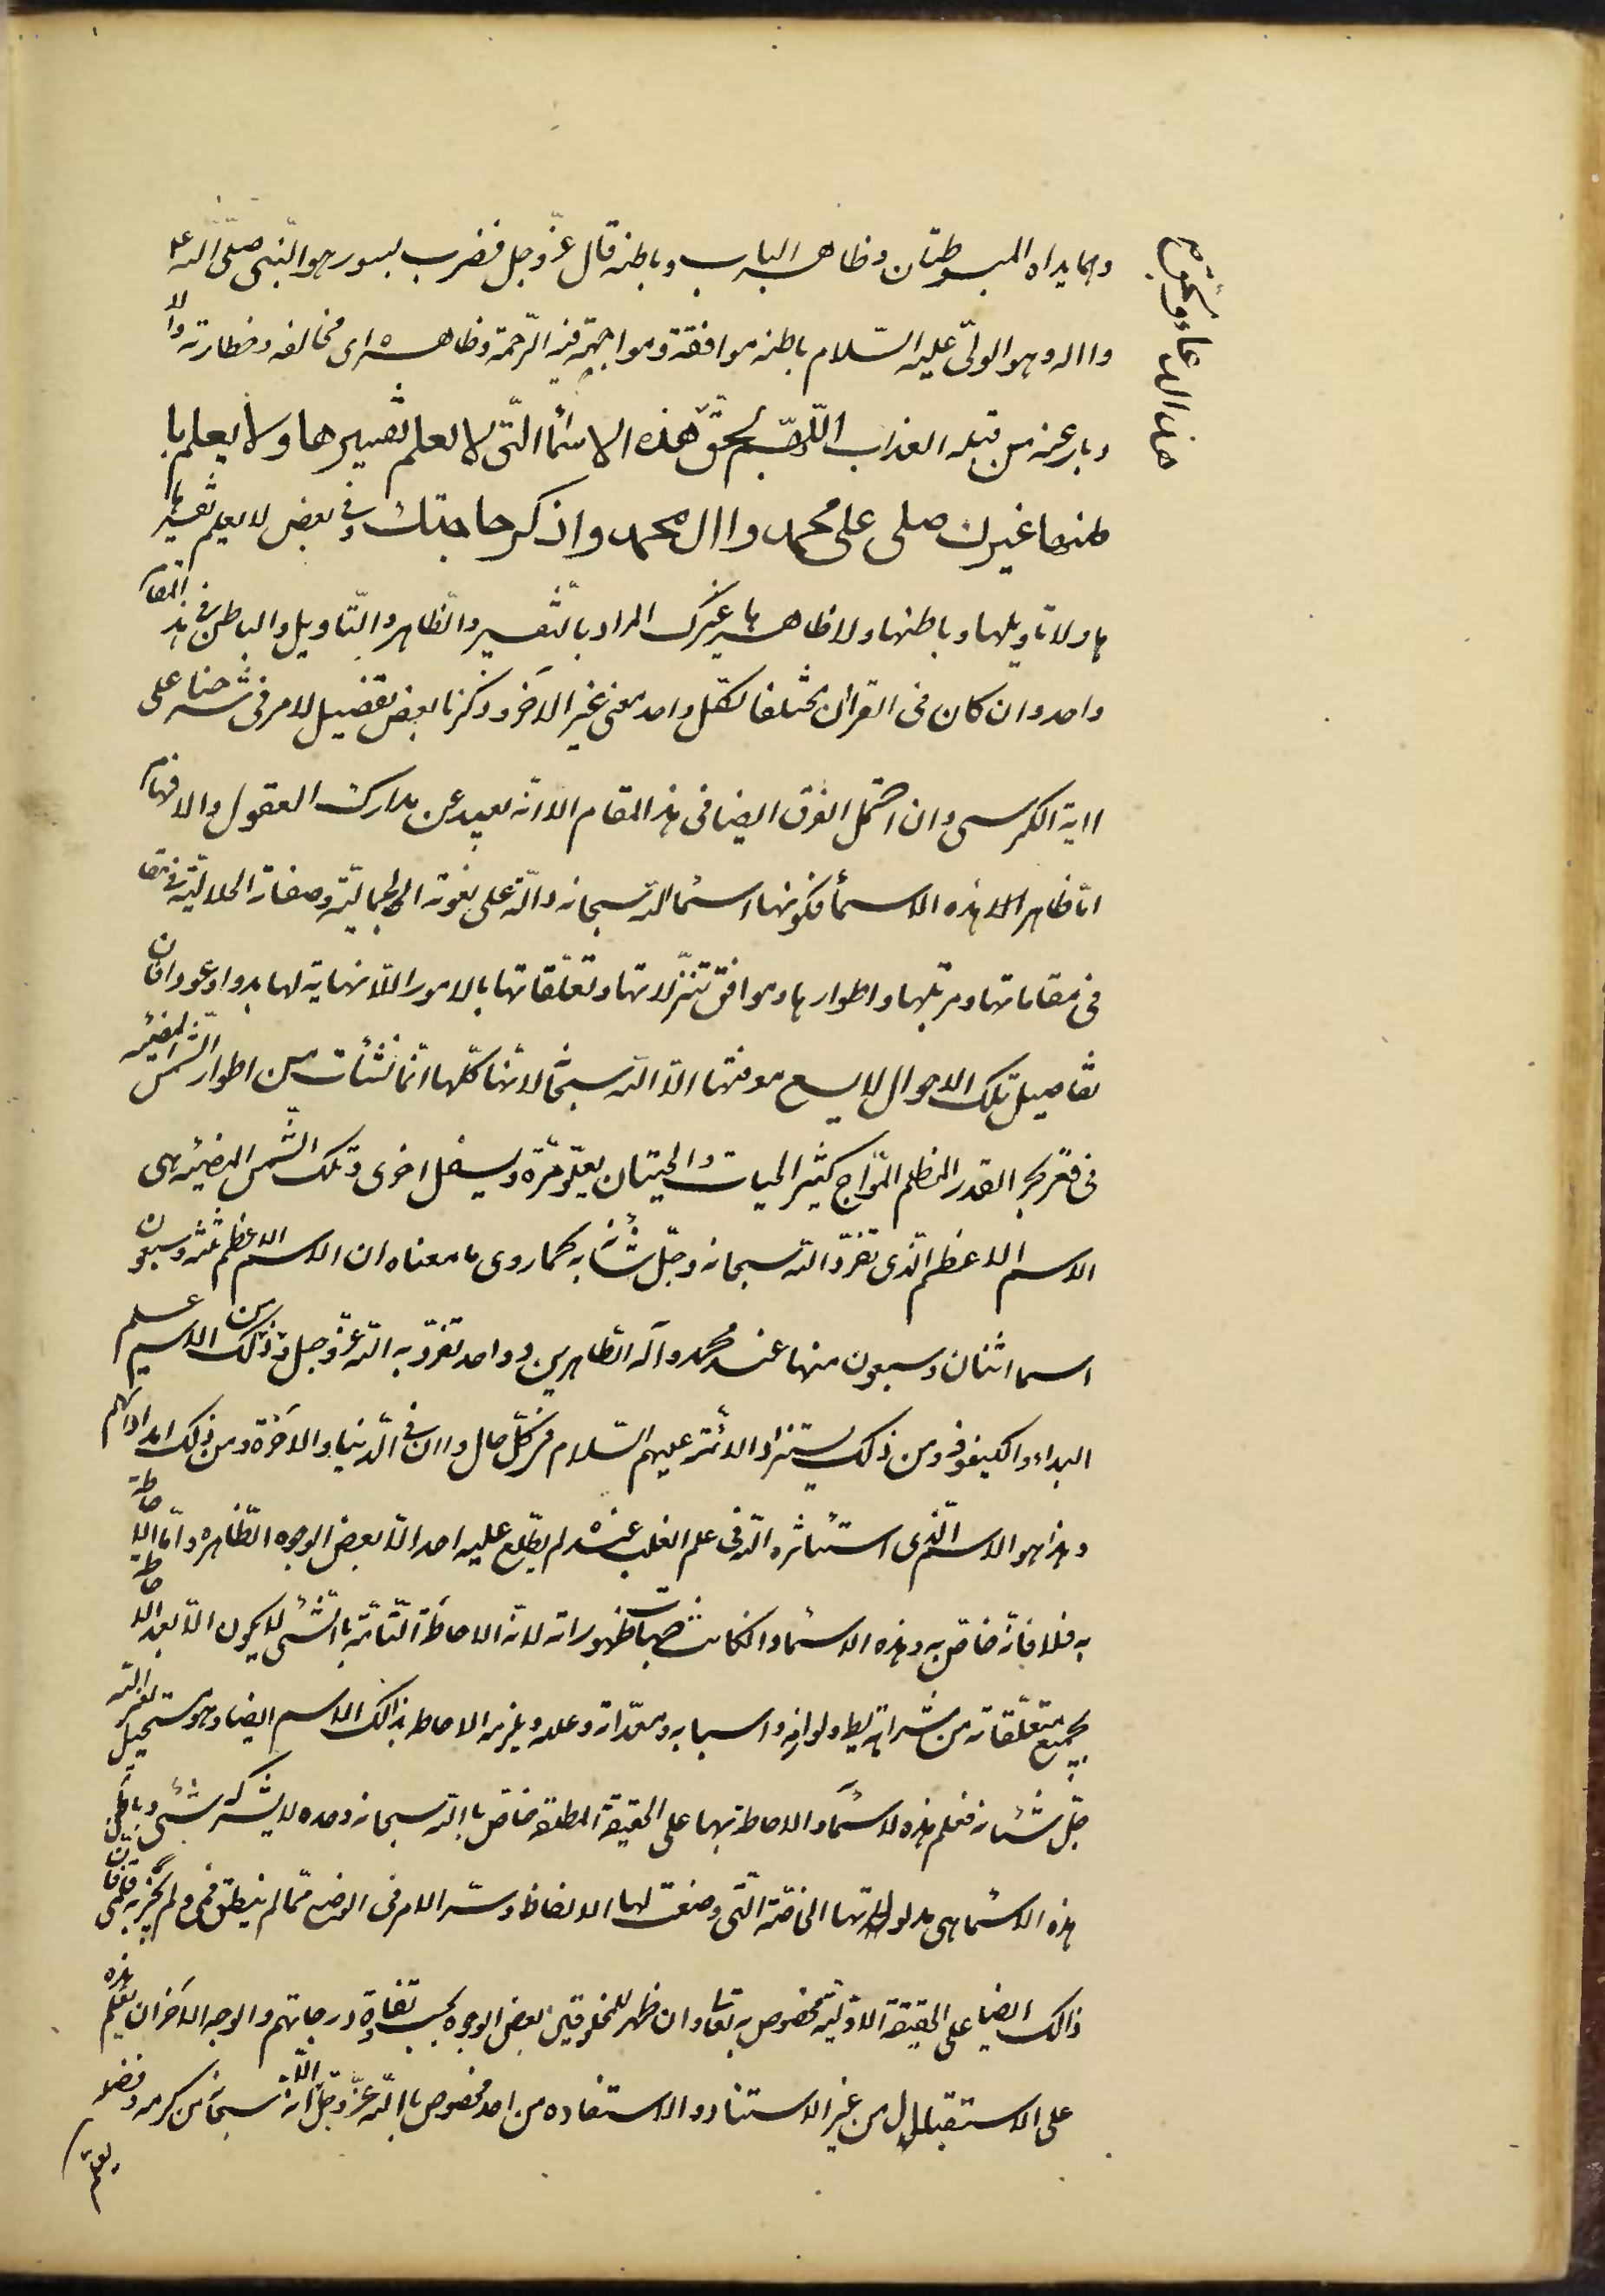 وهما يداه المبسوطتان وظاهر الباب وباطنه قال عزّ وجل فضرب بسور هو النّبي صلّى اللّه عليه
واله وهو الولىّ عليه السّلام باطنه موافقة ومواجهة فيه الرّحمة وظاهره اى مخالفه وخطارته والا
دبار عنه من قبله العذاب اللّهمّ بحقّ هذه الاسمآ التّى لا يعلم تفسيرها ولا يعلم با
طنها غيرك صلى على محمد واال محمد واذكر حاجتك وفى بعض لا يعلم تفسير
ها ولا تاويلها وباطنها ولا ظاهرها غيرك المراد بالتّفسير والظّاهر والتّاويل والباطن فى هذا المقام
واحد وان كان فى القرآن مختلفا لكلّ واحد معنى غير الآخر وذكرنا بعض تفصيل الامر فى شرحنا على
ااية الكرسى وان احتمل الفرق ايضا فى هذا المقام الا انّه بعيد عن مدارك العقول والافهام
امّا ظاهر الا هذه الاسمأ فكونها اسمآ للّه سبحانه دالّة على نعوته الجماليّة وصفاته الجلاليّة
فى مقاماتها ومراتبها واطوارها ومواقع تنزّلاتها وتعلّقاتها بالامور اللّا نهاية لها بدوا وعودا فان
تفاصيل تلك الاحوال لا يسع معرفتها الّا اللّه سبحانه لانّها كلّها انّما نشأت من اطوار الشّمس المضيئه
فى قعر بحر القدر المظلم الموّاج كثير الحيات والحيتان يعلو مرّة ويسفل اخرى وتلك الشّمس المضيئه هى
الاسم الاعظم الّذى تفرّد اللّه سبحانه وجلّ شأنه به كما روى ما معناه ان الاسم الاعظم ثلثه وسبعون
اسما اثنان وسبعون منها عند محمد وآله الطّاهرين وواحد تفرّد به اللّه عزّ وجل وذلك الاسم علم
البداء والكيفوفة ومن ذلك يستزاد الائمّة عليهم السّلام فى كلّ حال واان فى الدّنيا والاخرة ومن ذلك امداداتهم
وهذا هو الاسم الّذى استأثره اللّه فى علم الغيب عنده لم يطّلع عليه احد الّا بعض الوجوه الظّاهره وامّا الاحاطة
به فلا فانّه خاصّ به وهذه الاسماء وان كانت جهات ظهوراته لانّه الاحاطة التّامّة باالشّئ لا يكون الّا بعد الاحاطة
بجميع متعلّقاته من شرايطه ولوازمه واسبابه ومعدّاته وعلله ويلزمه الاحاطه بذالك الاسم ايضا وهو مستحيل لغير اللّه
جلّ شأنه فعلم هذه الاسمآء والاحاطة بها على الحقيقة المطلقه خاصّ باللّه سبحانه وحده لا يشركه شئ وباطن
هذه الاسمآ هى مدلولاتها الخاصّة الّتى وضعت لها الالفاظ وسرّ الامر فى الوضع ممّا لم ينطق فمى ولم يجر به قلمى فان
ذالك ايضا على الحقيقة الاوّليّة مخصوص به تعا وان ظهر للمخلوقين بعض الوجوه بحسب تفاوة درجاتهم والوجه الاخر ان يعلم هذه
على الاستقلال من غير الاستناد والاستفاده من احد مخصوص باللّه عزّ وجلّ الّا انّه سبحانه من كرمه وفضله
يعلم
هذا الدعاء